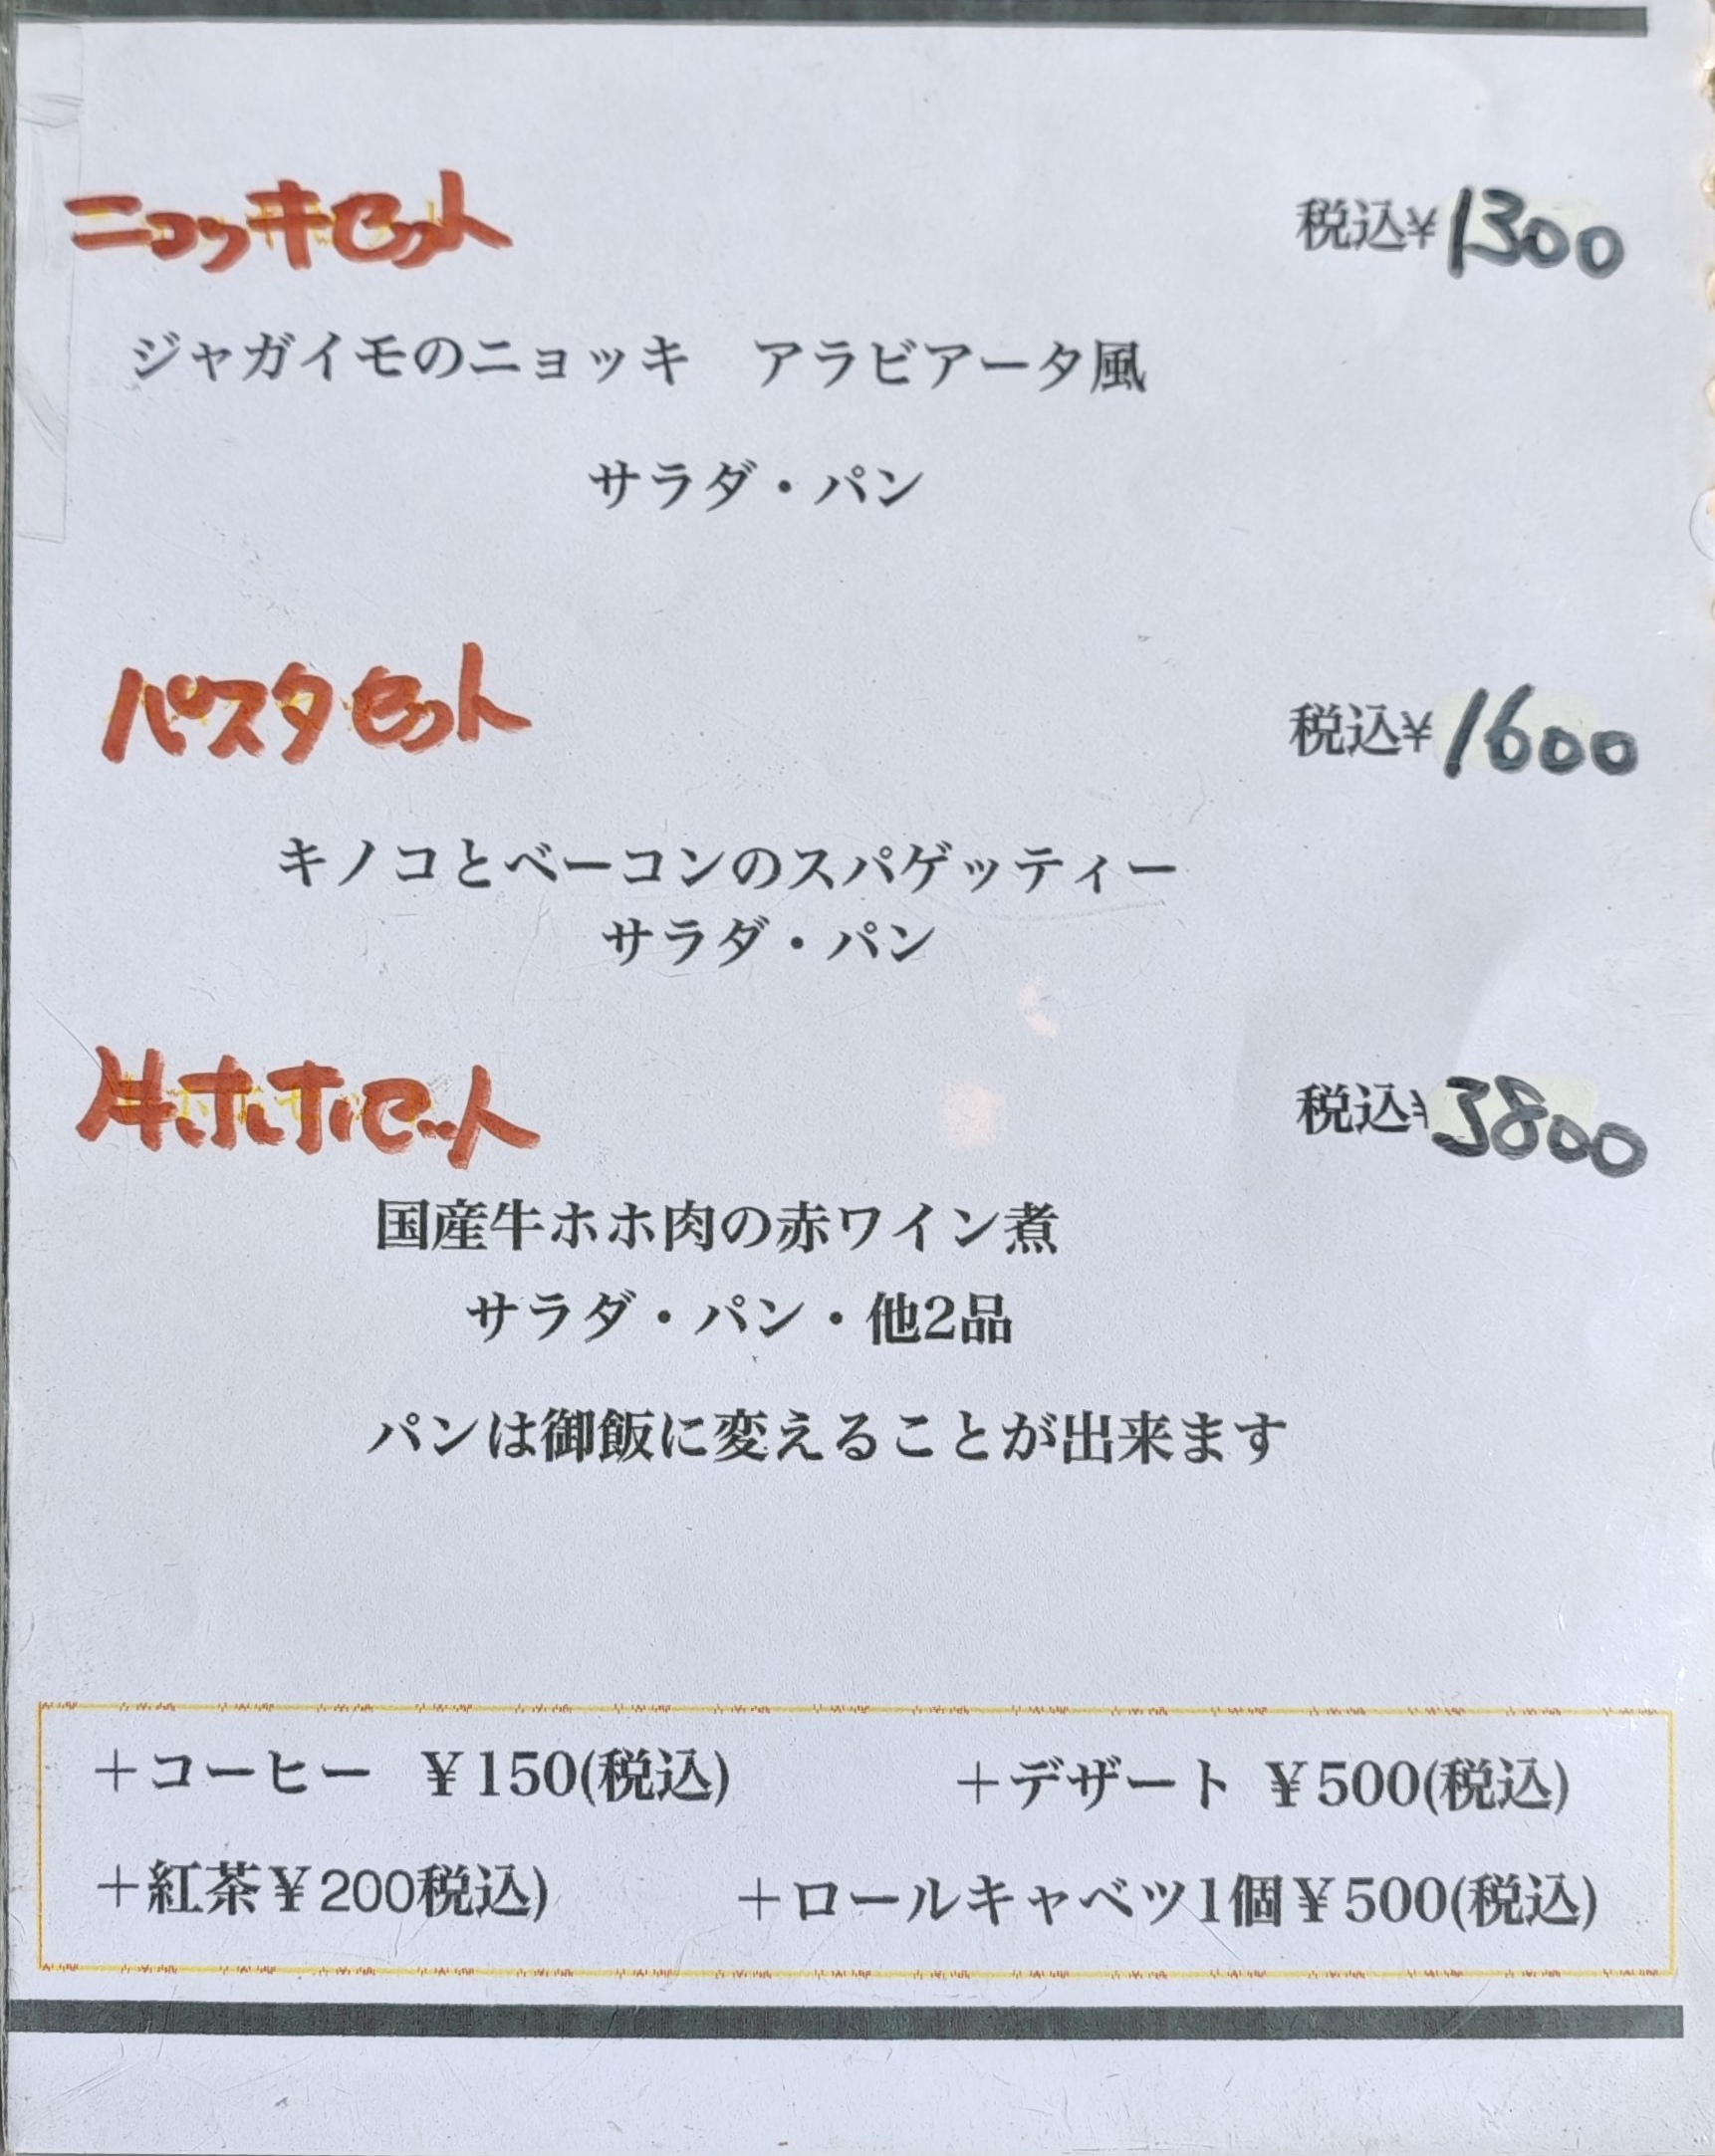 ニョッキセット 税込¥1300
ジャガイモのニョッキ　アラビアータ風
サラダ・パン
パスタセット 税込¥1600
キノコとベーコンのスパゲッティー
サラダ・パン
牛ホホセット 税込¥3800
国産牛ホホ肉の赤ワイン煮
サラダ・パン・他2品
パンは御飯に変えることが出来ます
＋コーヒー ¥150(税込) ＋デザート ¥500(税込)
＋紅茶¥200税込) ＋ロールキャベツ1個¥500(税込)